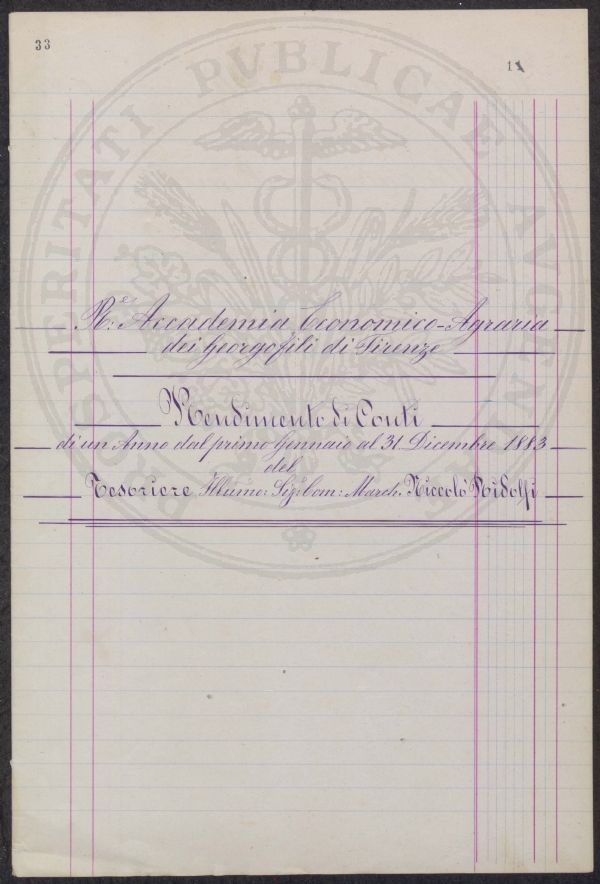 33
11
PROSPERITATI PVBLICAE AVGENDAE
R:e Accademia Economico-Agraria
dei Georgofili di Firenze
Rendimento di Conti
di un Anno dal primo Gennaio al 31 Dicembre 1883
del
Tesoriere Illumo: Sig: Com: March. Niccolò Ridolfi